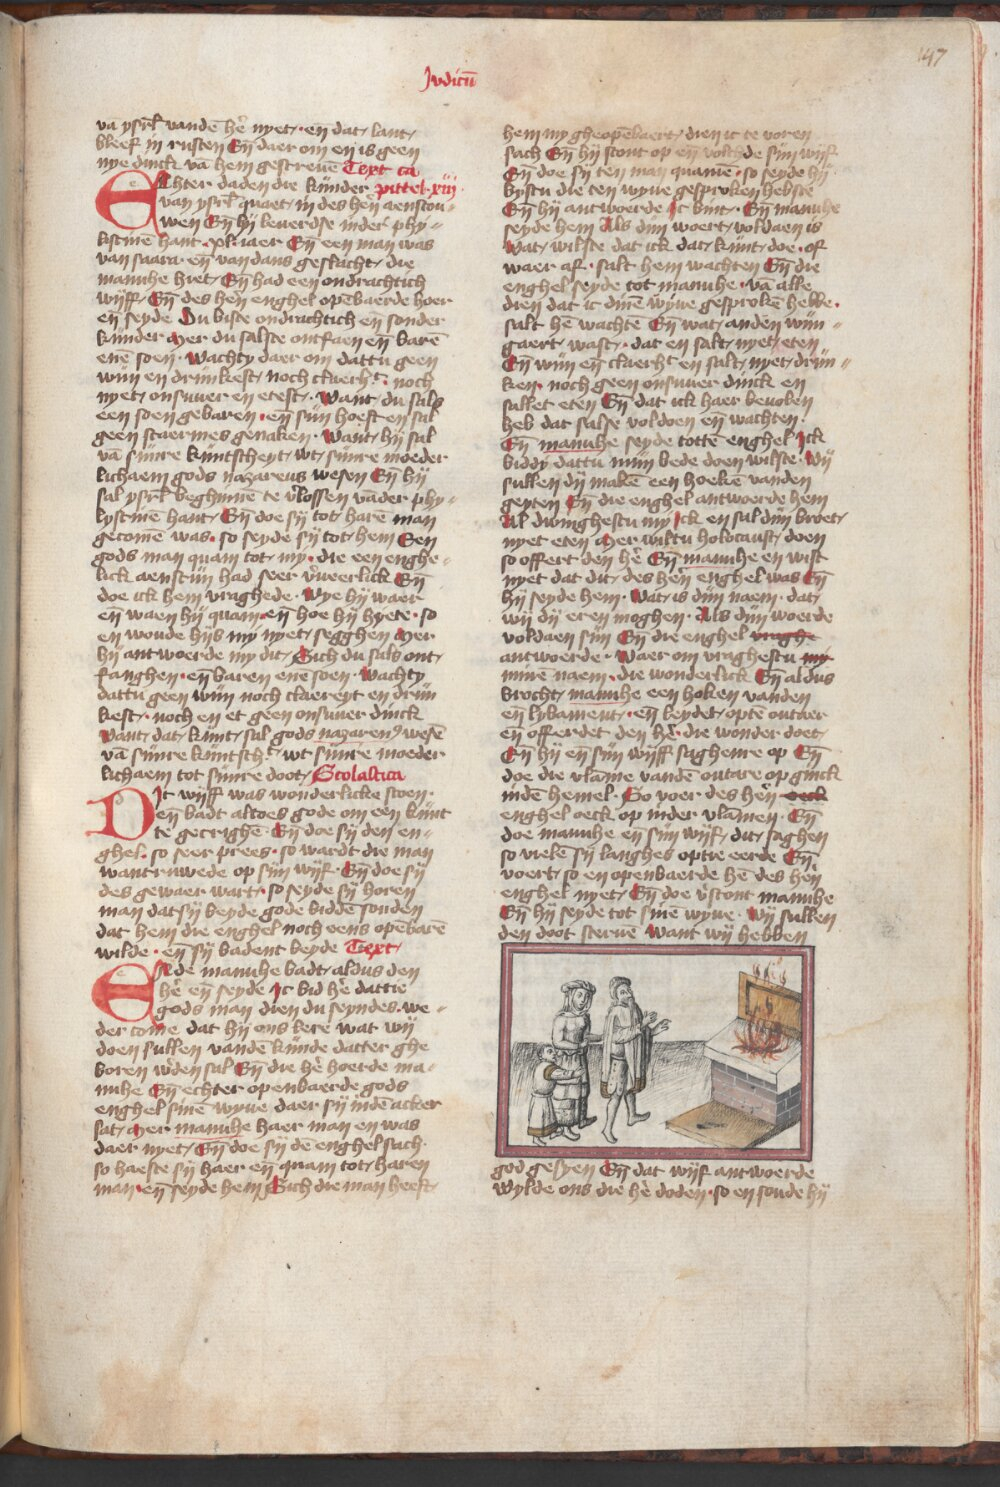 147
Judicū
vā ysrl̄ vandē hē nyet · en̄ dat lant
bleef in rusten En̄ daer om en is geen
nye dinck vā hem gescreuē Text ca
pittel · xiij ·
EChter daden die kijnder
van ysrl̄ quaet in des hen̄ aenscou-
wen En̄ hij leuerdse inder phy-
listinē hant · xl · iaer En̄ een man was
van saara en̄ van dans geslacht die
manuhe hiet En̄ had een ondrachtich
wijff En̄ des hen̄ enghel opēbaerde hoer
en̄ seyde Du biste ondrachtich en̄ sonder
kijnder Mer du salste ontfaen en̄ barē
enē soen · Wachty daer om dattu geen
wijn en drijnkest noch claerht̄ noch
nyet onsuuer en etest · Want du sals
een soen gebaren · en̄ sijn hoeft en sal
geen scaermes genaken · Want hij sal
vā sijnre kijntscheyt wt sijnre moeder
lichaem gods nazareus wesen En̄ hij
sal ysrl̄ beghinnē te v̄lossen vāder phy-
lystinē hant En̄ doe sij tot harē man
gecomē was · so seyde sij tot hem Een
gods man quam tot my · die een enghe-
lick aenscijn had seer v̄veerlick En̄
doe ick hem vraghede · Wye hij waer
en̄ waen hij quam en̄ hoe hij hyete · so
en woude hijs my nyet segghen Mer
hij antwoerde my dit Sich du sals ont
fanghen · en̄ baren ene soen · Wachty
dattu geen wijn noch claereyt en drijn
kest · noch en et geen onsuuer dinck
Want dat kijnt sal gods nazaren⁹ wesē
vā sijnre kijntsch̄t wt sijnre moeder
lichaem tot sijnre doot Scolastica
DIt wijff was wonderlicke scoen ·
En̄ badt altoes gode om een kijnt
te gecrighē · En̄ doe sij den en-
ghel · so seer prees · so wardt die man
wantruwede op sijn wijf · En̄ doe sij
des gewaer wart · so seyde sij horen
man dat sij beyde gode biddē souden
dat hem die enghel noch eens opēbarē
wilde · en̄ sij badent beyde Text
ENde manuhe badt aldus den
hē en̄ seyde Ic bid hē dattie
gods man dien du seyndes · we-
der come dat hij ons lere wat wij
doen sullen vandē kijnde datter ghe
boren wᵉden sal En̄ die hē hoerde ma-
nuhe En̄ echter openbaerde gods
enghel sinē wyue daer sij indē acker
sat Mer manuhe haer man en was
daer nyet En̄ doe sij dē enghel sach ·
so haeste sij haer en̄ quam tot haren
man · en̄ seyde hem Sich die man heeft
hem my gheopēbaert dien ic te voren
sach En̄ hij stont op en̄ volchde sijn wijf
En̄ doe sij ten man quamē · so seyde hij
bystu die ten wyue gesproken hebste
En̄ hij antwoerde Ic bint · En̄ manuhe
seyde hem Als dijn woert voldaen is
Wat wilste dat ick dat kijnt doe · of
waer af · salt hem wachten En̄ die
enghel seyde tot manuhe · vā alle
dien dat ic dinē wyue gesprokē hebbe ·
salt hē wachtē En̄ wat anden wijn-
gaert wast · dat en salt nyet eten
En̄ wijn en̄ claerht̄ en salt nyet drijn-
ken · noch geen onsuuer dinck en
sallet eten En̄ dat ick haer beuolen
heb dat salse voldoen en̄ wachten ·
En̄ manuhe seyde tottē enghel Ick
biddy dattu mijn bede doen wilste · Wij
sullen dij makē een hoekēn vanden
geyten En̄ die enghel antwoerde hem
Al dwinghestu my Ick en sal dijn broet
nyet eten Mer wiltu holocaust doen
so offert den hē En̄ manuhe en wist
nyet dat dit des hen̄ enghel was En̄
hij seyde hem · Wat is dijn naem · dat
wij dij eren moghen · Als dijn woerde
voldaen sijn En̄ die enghel vraghe
antwoerde · Waer om vraghestu my
mine naem · die wonderlick En̄ aldus
brocht manuhe een hoken vanden
en̄ lybament · en̄ leydet optē outaer
en̄ offerdet den hē · die wonder doet
En̄ hij en̄ sijn wijff saghenre op En̄
doe die vlāme vandē outare op ginck
indē hemel · So voer des hen̄ oeck
enghel oeck op inder vlāmen · En̄
doe manuhe en̄ sijn wijf dit saghen
so vielē sij langhes optie eerde En̄
voert so en openbaerde hē des hen̄
enghel nyet En̄ doe v̄stont manuhe
En̄ hij seyde tot sinē wyue · Wij sullen
den doot sterue Want wij hebben
god gesyen En̄ dat wijf antwoerde
Wylde ons die hē doden · so en soude hij